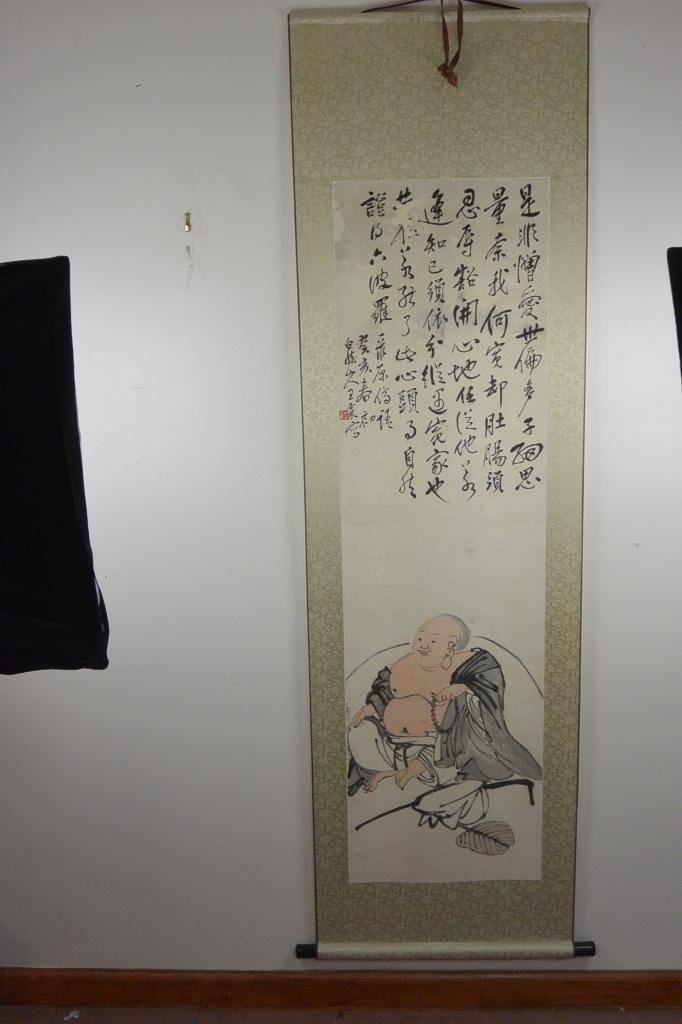 是非憎愛世偏多子細思
量奈我何寬却肚腸須
忍辱豁開心地任從他若
逢知己須依分縱遇冤家也
共和若能了此心頭事自然
證得六波羅
癸亥春
白龍山人王震寫